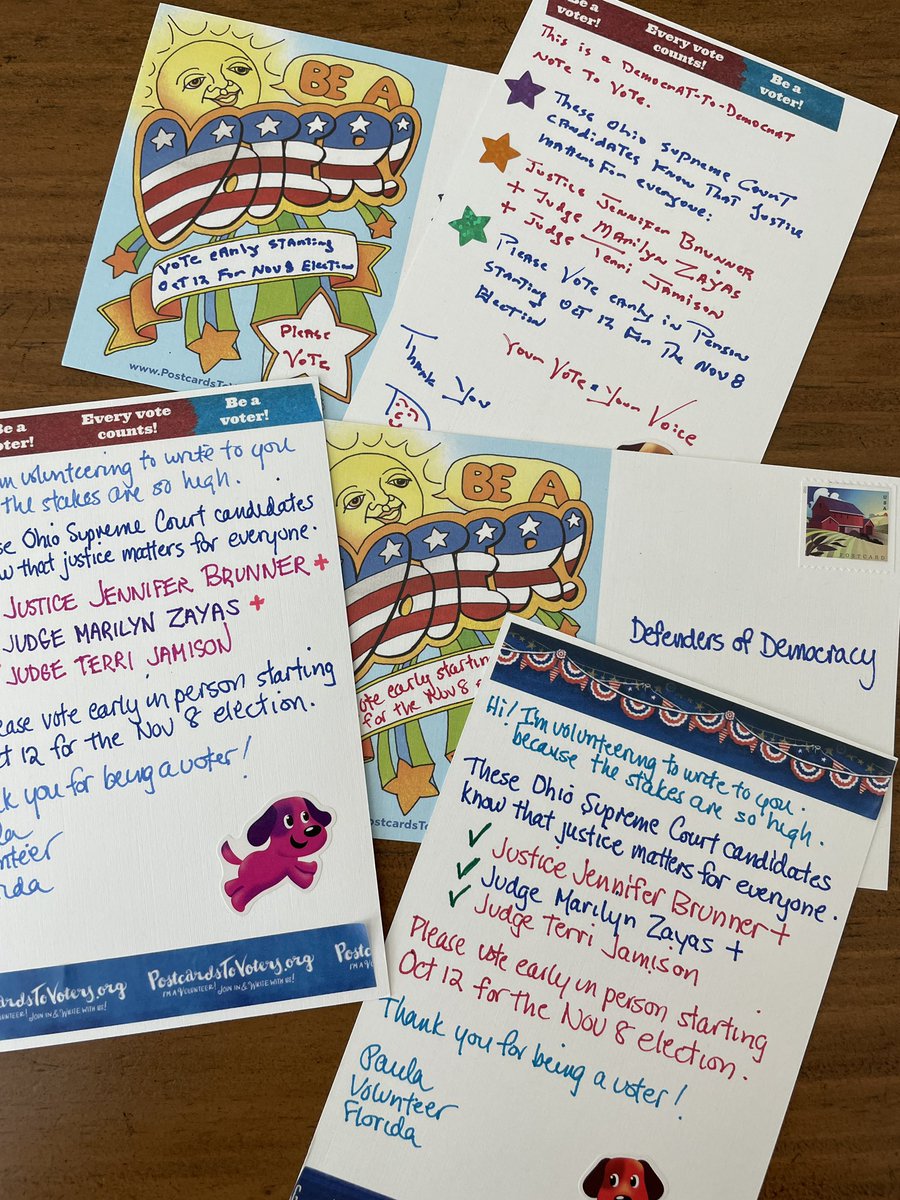 BE A
VOTER!
VOTE EARLY STARTING
OCT 12 FOR NOV 8 ELECTION
PLEASE
VOTE
www.PostcardsTo
Be a
voter!
Every vote
counts!
Be a
voter!
This is a Democrat-To-Democrat
Note To Vote.
These Ohio Supreme Court
candidates know That Justice
matters For everyone:
Justice Jennifer Brunner
+ Judge Marilyn Zayas
+ Judge Terri Jamison
Please Vote early in Person
STarting OCT 12 For The Nov 8
Election
Your Vote = Your Voice
Thank You
Be a
voter!
Every vote
counts!
Be a
voter!
I'm volunteering to write to you
the stakes are so high.
These Ohio Supreme Court candidates
know that justice matters for everyone.
JUSTICE JENNIFER BRUNNER +
JUDGE MARILYN ZAYAS +
JUDGE TERRI JAMISON
Please vote early in person starting
Oct 12 for the Nov 8 election.
Thank you for being a voter!
Paula
Volunteer
Florida
cardsToVoters.org
VOLUNTEER! JOIN IN & WRITE WITH US!
PostcardsToVoters.org
I'M A VOLUNTEER! JOIN IN & WRITE WITH US!
Postca
BE A
VOTER!
Vote early starting
for the Nov 8
PostcardsTo
USA
POSTCARD
Defenders of Democracy
Hi! I'm volunteering to write to you
because the stakes are so high.
These Ohio Supreme Court candidates
know that justice matters for everyone.
✓ Justice Jennifer Brunner +
✓ Judge Marilyn Zayas +
✓ Judge Terri Jamison
Please vote early in person starting
Oct 12 for the Nov 8 election.
Thank you for being a voter!
Paula
Volunteer
Florida